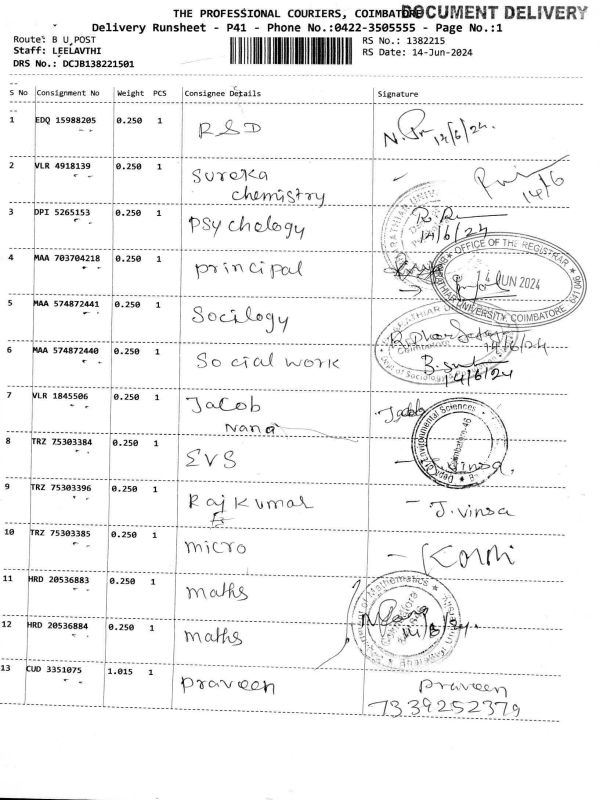 THE PROFESSIONAL COURIERS, COIMBATORE
DOCUMENT DELIVERY
Delivery Runsheet - P41 - Phone No.:0422-3505555 - Page No.:1
Route: B U POST
Staff: LEELAVTHI
DRS No.: DCJB138221501
RS No.: 1382215
RS Date: 14-Jun-2024
S No Consignment No Weight PCS Consignee Details Signature
1 EDQ 15988205 0.250 1 RSD 14/6/24.
2 VLR 4918139 0.250 1 Sureka
chemistry 14/6
3 DPI 5265153 0.250 1 Psychology
14/6/24
4 MAA 703704218 0.250 1 principal
OFFICE OF THE REGISTRAR
14 JUN 2024
BHARATHIAR UNIVERSITY, COIMBATORE 641 046
5 MAA 574872441 0.250 1 Socilogy
14/6/24
6 MAA 574872440 0.250 1 Social work
14/6/24
7 VLR 1845506 0.250 1 Jacob Jacob
nana
Dept. of Environmental Sciences
8 TRZ 75303384 0.250 1 EVS J.vinsa.
9 TRZ 75303396 0.250 1 Raj Kumar - J.vinsa
10 TRZ 75303385 0.250 1 micro
11 HRD 20536883 0.250 1 maths
12 HRD 20536884 0.250 1 maths
13 CUD 3351075 1.015 1 praveen praveen
7339252379